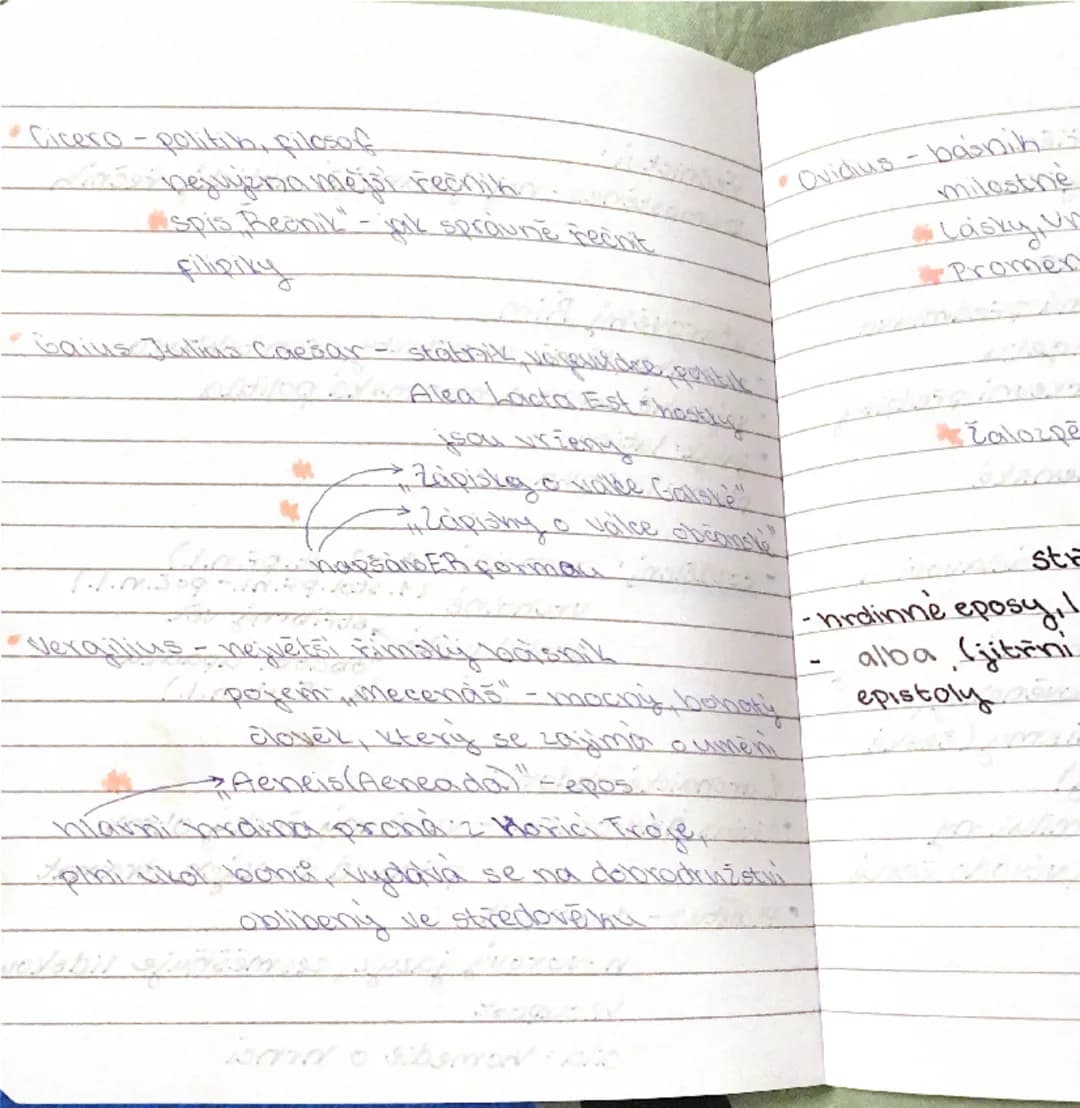 Cicero - politik, filosof
nejvýznamější řečník
spis „Řečník" - jak správně řečnit
filipiky
Gaius Julius Caesar - státník, vojevůdce, politik
Alea Lacta Est - kostky
jsou vrženy
„Zápisky o válce Galské"
„Zápisky o válce občanské"
napsáno ER formou
Vergilius - největší římský básník
pojem „Mecenáš" - mocný, bohatý
člověk, který se zajímá o umění
„Aeneis (Aeneada)" - epos
hlavní hrdina prchá z hořící Tróje,
plní úkol bohů, vydává se na dobrodružství
oblíbený ve středověku
Ovidius - básník
milostné
Lásky, Um
Proměn
Žalozpě
stř
- hrdinné eposy, l
- alba, (jitřní
epistoly